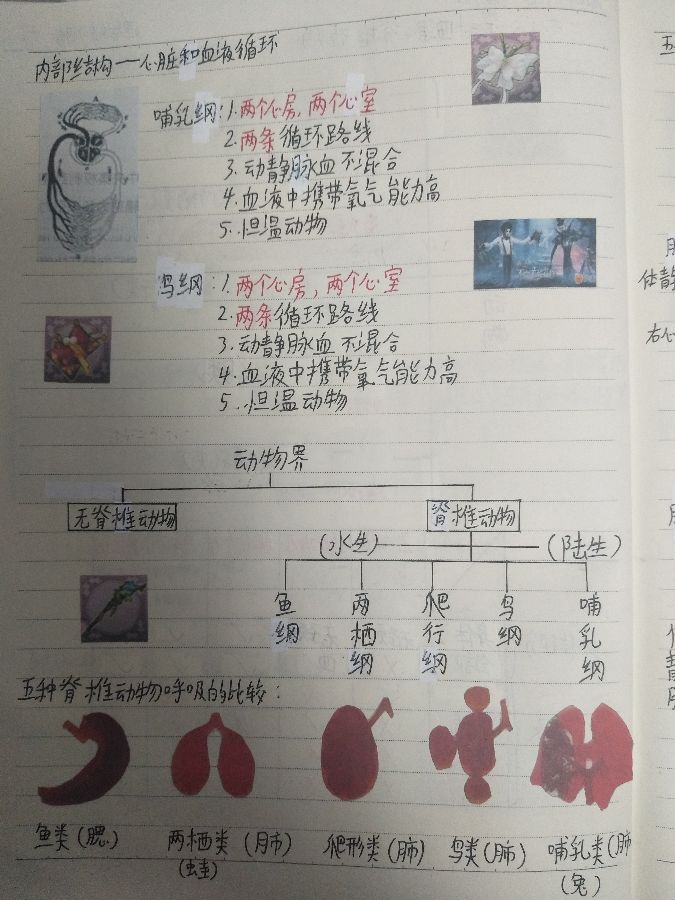 内部结构——心脏和血液循环
哺乳纲:1.两个心房,两个心室
2.两条循环路线
3.动静脉血不混合
4.血液中携带氧气能力高
5.恒温动物
鸟纲:1.两个心房,两个心室
2.两条循环路线
3.动静脉血不混合
4.血液中携带氧气能力高
5.恒温动物
动物界
无脊椎动物 脊椎动物
(水生) (陆生)
鱼纲 两栖纲 爬行纲 鸟纲 哺乳纲
五种脊椎动物呼吸的比较:
鱼类(腮) 两栖类(肺) 爬形类(肺) 鸟类(肺) 哺乳类(肺
(蛙) (兔)
五
体静
右心